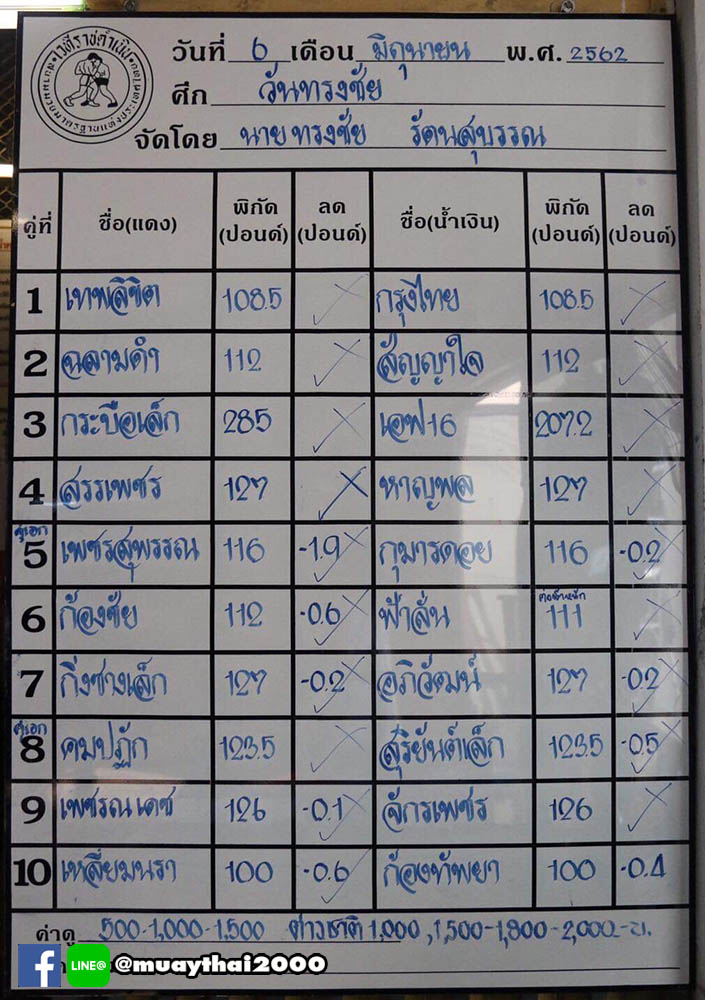 เวทีราชดำเนิน
วันที่ 6 เดือน มิถุนายน พ.ศ. 2562
ศึก วันทรงชัย
จัดโดย นายทรงชัย รัตนสุบรรณ
คู่ที่ ชื่อ(แดง) พิกัด (ปอนด์) ลด (ปอนด์) ชื่อ(น้ำเงิน) พิกัด (ปอนด์) ลด (ปอนด์)
1 เทพลิขิต 108.5 กรุงไทย 108.5
2 ฉลามดำ 112 สัญญาใจ 112
3 กระบือเล็ก 285 เอฟ16 207.2
4 สรรเพชร 127 หาญพล 127
คู่เอก 5 เพชรสุพรรณ 116 -1.9 กุมารดอย 116 -0.2
6 ก้องชัย 112 -0.6 ฟ้าลั่น ต่อน้ำหนัก 111
7 กิ่งซางเล็ก 127 -0.2 อภิวัฒน์ 127 -0.2
คู่เอก 8 คมปฏัก 123.5 สุริยันต์เล็ก 123.5 -0.5
9 เพชรณเดช 126 -0.1 จักรเพชร 126
10 เหลี่ยมนรา 100 -0.6 ก้องทัพยา 100 -0.4
ค่าดู 500-1,000-1,500 ต่างชาติ 1,000, 1,500-1,800-2,000.-บ.
f LINE@ @muaythai2000